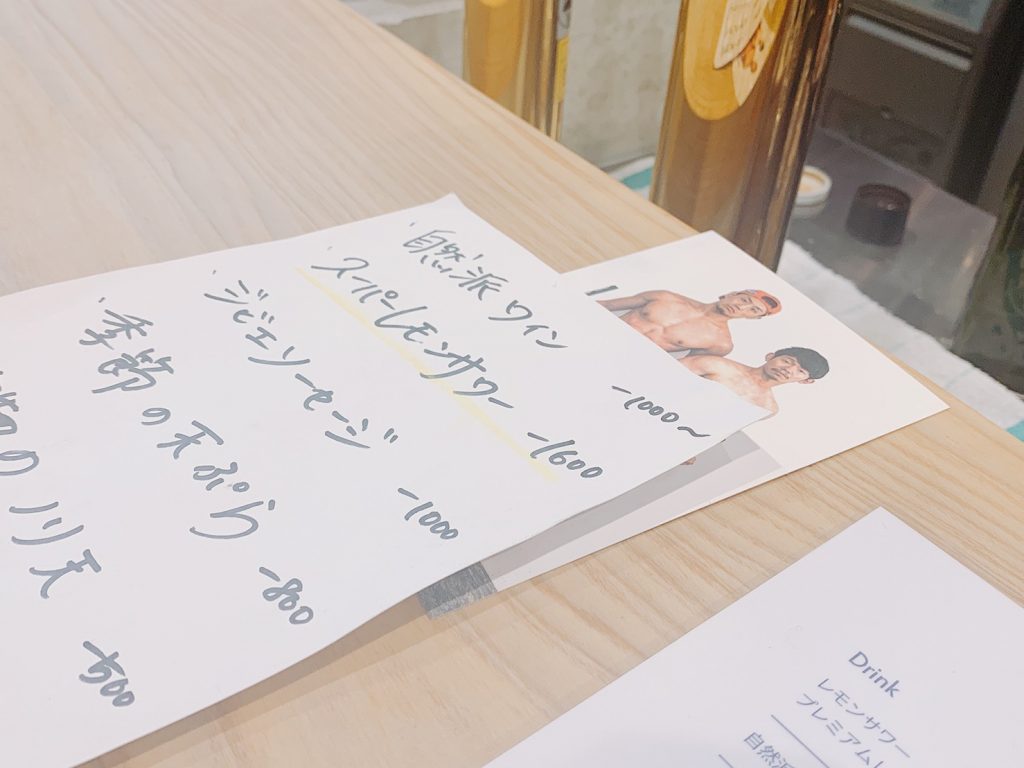 自然派ワイン -1000〜
スーパーレモンサワー -1600
ジビエソーセージ -1000
季節の天ぷら -800
のノリ天 500
Drink
レモンサワー
プレミアム
自然派